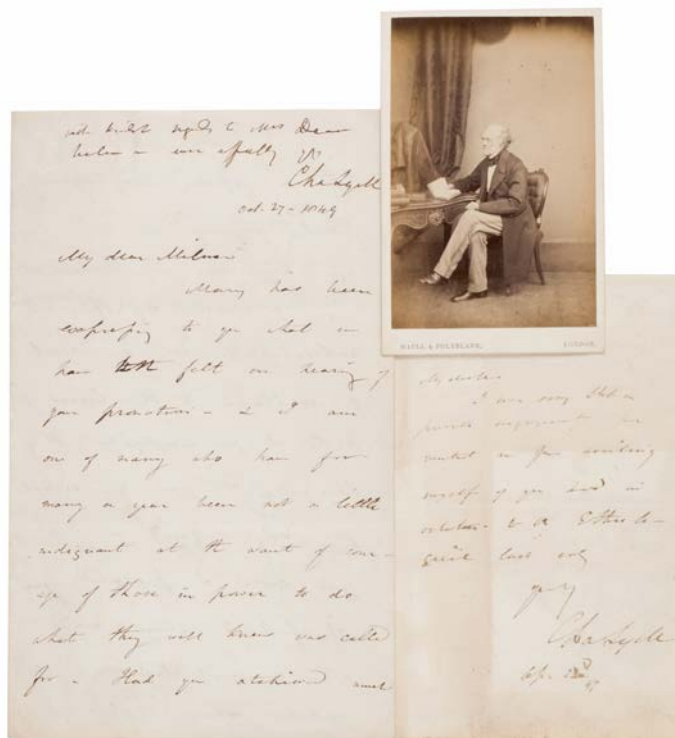 with kindest regards to Mrs Dean
believe me ever affectly yrs
Cha Lyell
Oct. 27 - 1849
My dear Milman
Mary has been
expressing to you what we
have felt on hearing of
your promotion - & I am
one of many who have for
many a year been not a little
indignant at the want of cour-
age of those in power to do
what they well knew was called
for - Had you attained much
MAULL & POLYBLANK, LONDON.
I am sorry that a
previous engagement
from availing
myself of your kind in
vitation
yrs
Cha Lyell